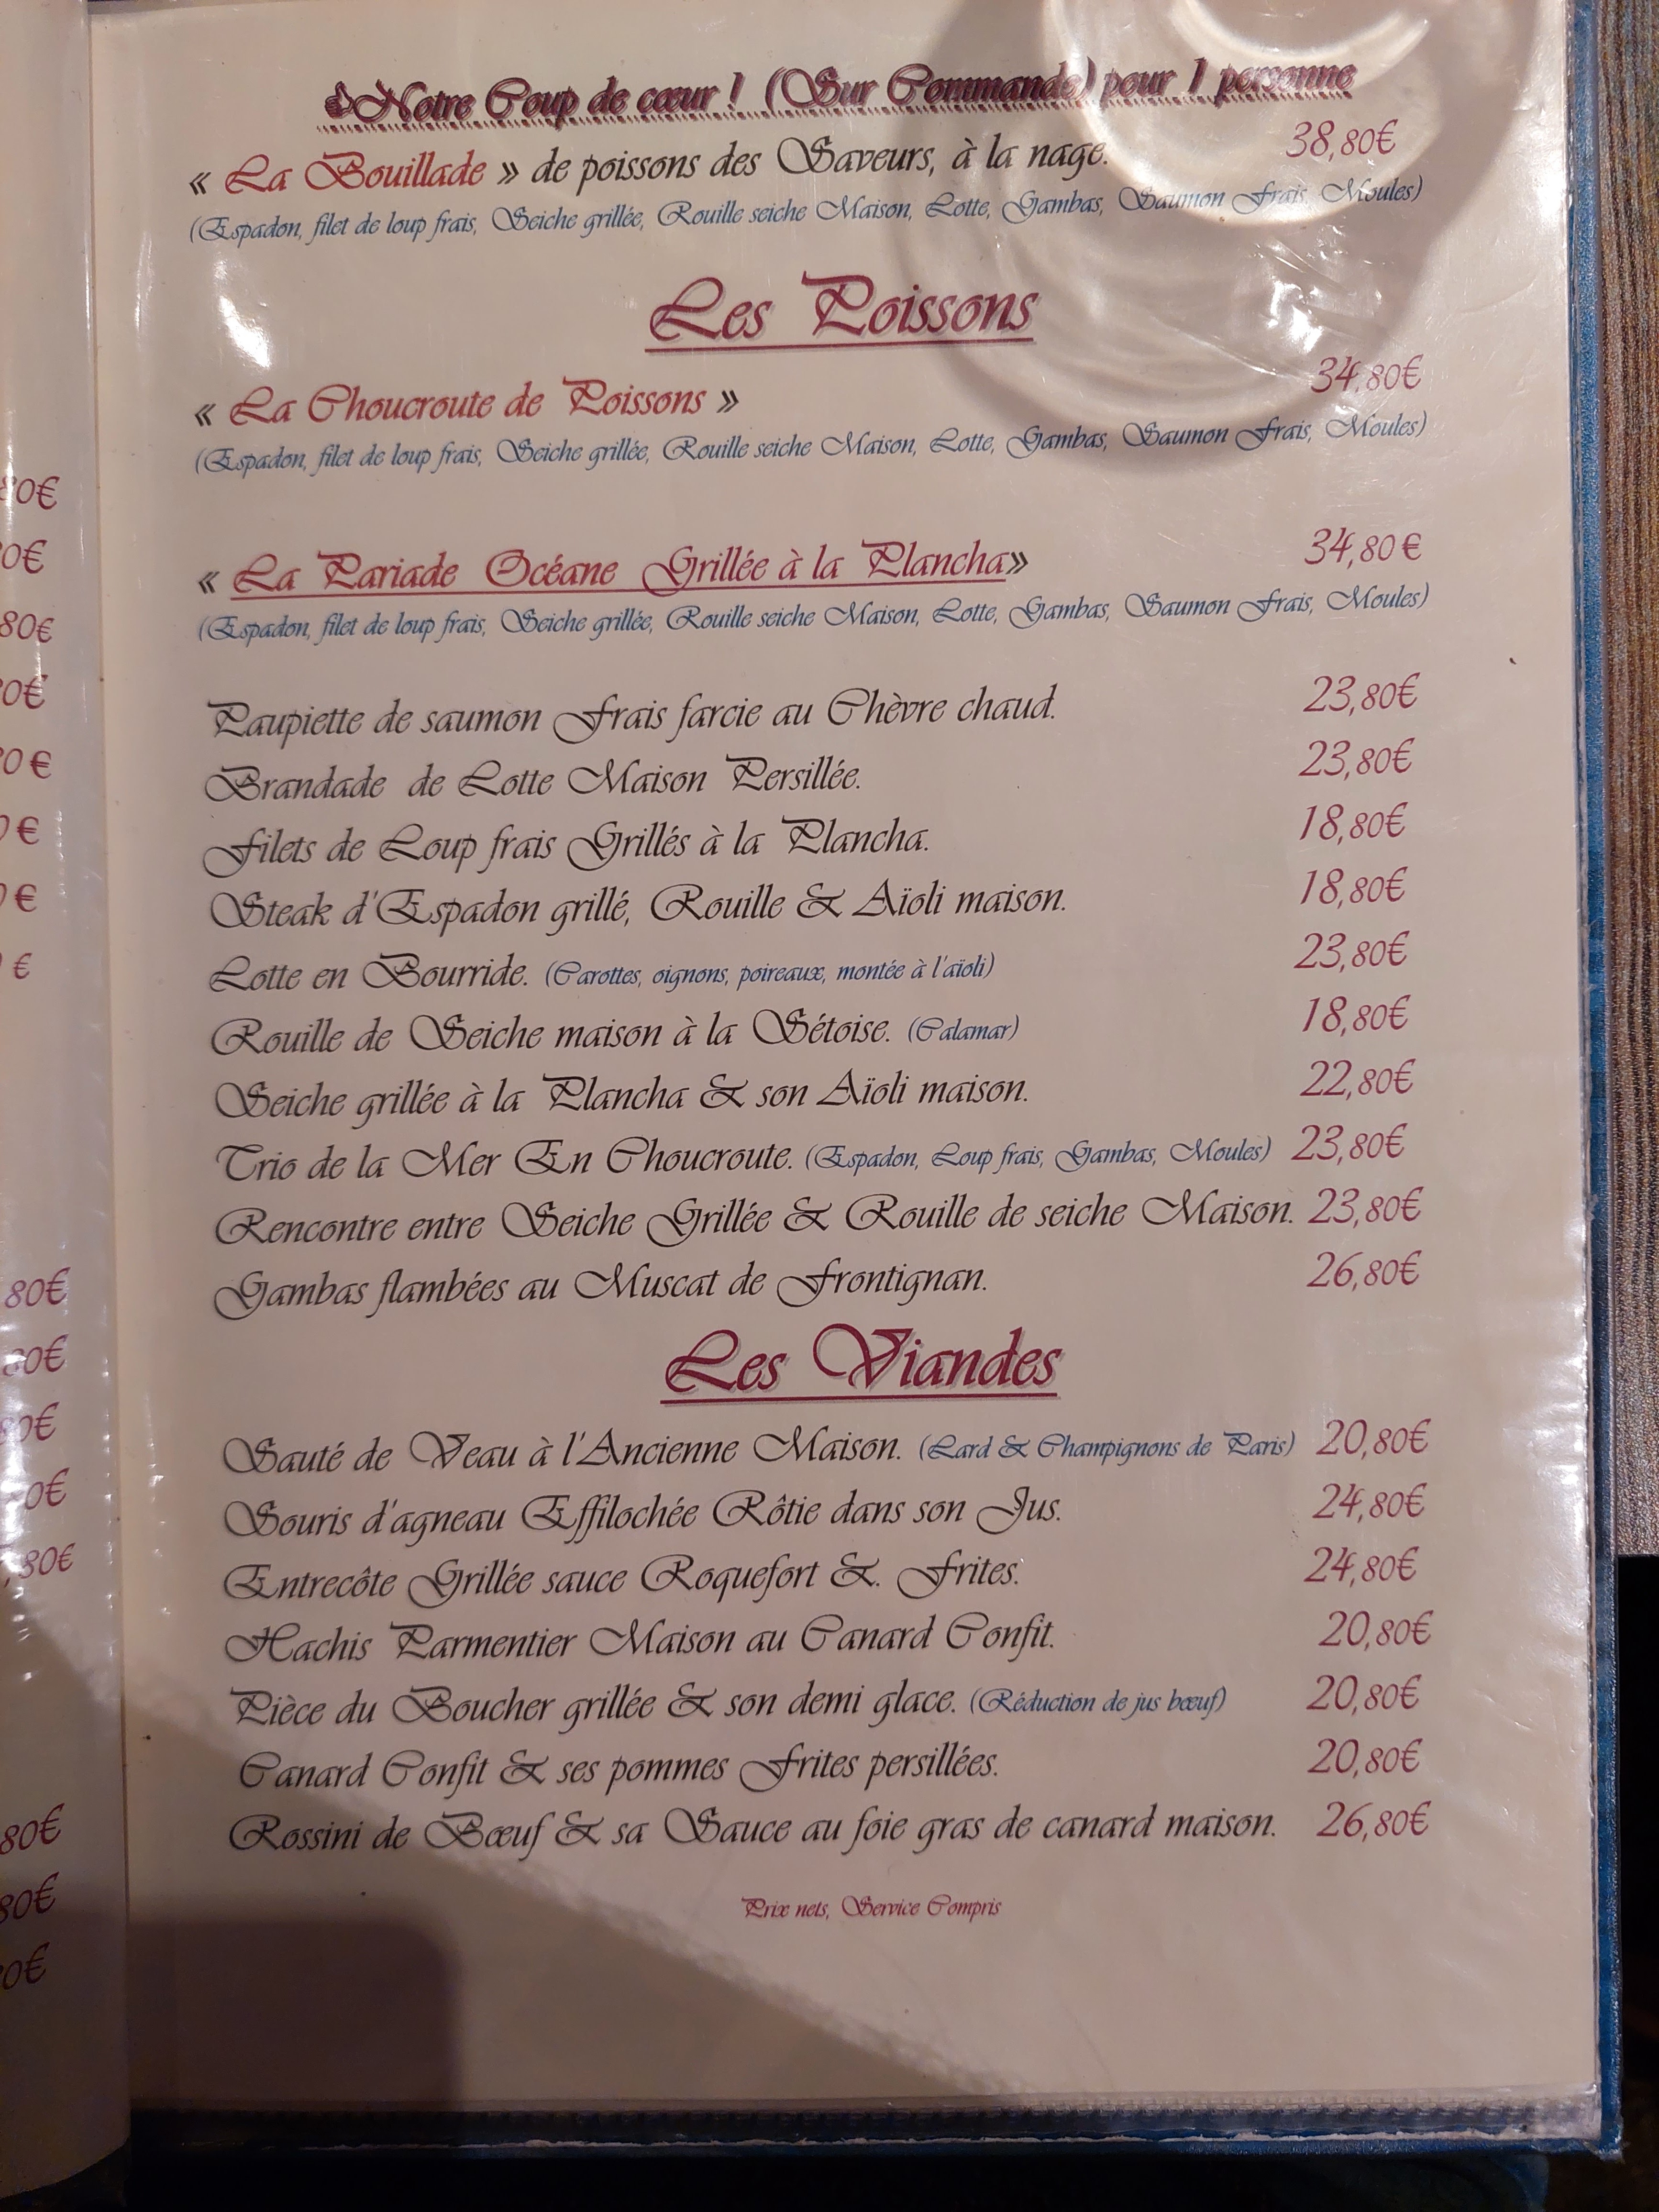 Notre Coup de cœur ! (Sur Commande) pour 1 personne
« La Bouillade » de poissons des Saveurs, à la nage. 38,80€
(Espadon, filet de loup frais, Seiche grillée, Rouille seiche Maison, Lotte, Gambas, Saumon Frais, Moules)
Les Poissons
« La Choucroute de Poissons » 34,80€
(Espadon, filet de loup frais, Seiche grillée, Rouille seiche Maison, Lotte, Gambas, Saumon Frais, Moules)
« La Pariade Océane Grillée à la Plancha» 34,80 €
(Espadon, filet de loup frais, Seiche grillée, Rouille seiche Maison, Lotte, Gambas, Saumon Frais, Moules)
Paupiette de saumon Frais farcie au Chèvre chaud. 23,80€
Brandade de Lotte Maison Persillée. 23,80€
Filets de Loup frais Grillés à la Plancha. 18,80€
Steak d'Espadon grillé, Rouille & Aïoli maison. 18,80€
Lotte en Bourride. (Carottes, oignons, poireaux, montée à l'aïoli) 23,80€
Rouille de Seiche maison à la Sétoise. (Calamar) 18,80€
Seiche grillée à la Plancha & son Aïoli maison. 22,80€
Trio de la Mer En Choucroute. (Espadon, Loup frais, Gambas, Moules) 23,80€
Rencontre entre Seiche Grillée & Rouille de seiche Maison. 23,80€
Gambas flambées au Muscat de Frontignan. 26,80€
Les Viandes
Sauté de Veau à l'Ancienne Maison. (Lard & Champignons de Paris) 20,80€
Souris d'agneau Effilochée Rôtie dans son Jus. 24,80€
Entrecôte Grillée sauce Roquefort &. Frites. 24,80€
Hachis Parmentier Maison au Canard Confit. 20,80€
Pièce du Boucher grillée & son demi glace. (Réduction de jus bœuf) 20,80€
Canard Confit & ses pommes Frites persillées. 20,80€
Rossini de Bœuf & sa Sauce au foie gras de canard maison. 26,80€
Prix nets, Service Compris